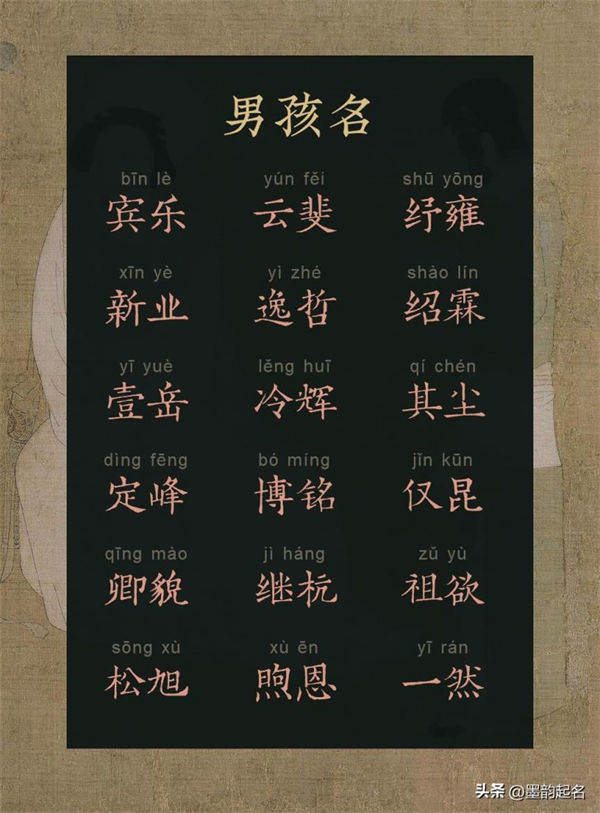 男孩名
bīn lè yún fěi shū yōng
宾乐 云斐 纾雍
xīn yè yì zhé shào lín
新业 逸哲 绍霖
yī yuè lěng huī qí chén
壹岳 冷辉 其尘
dìng fēng bó míng jǐn kūn
定峰 博铭 仅昆
qīng mào jì háng zǔ yù
卿貌 继杭 祖欲
sōng xù xù ēn yī rán
松旭 煦恩 一然
头条 @墨韵起名